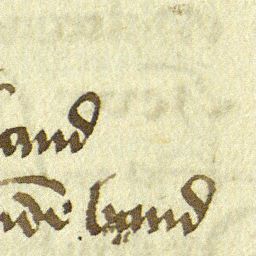 and
nde hand